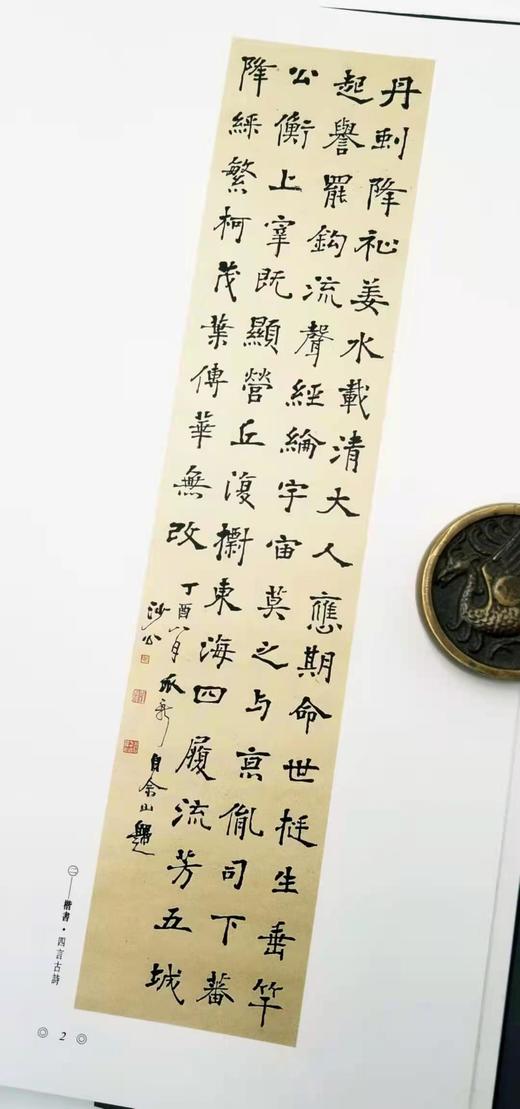 丹降祉姜水載清大人應期命世挺生垂竿
起譽罷鈎流聲經綸宇宙莫之与京胤司下蕃
公衡上宰既顯營丘復東海四履流芳五城
降綵繁柯茂葉傳華無改
丁酉八月永新自佘山歸題
沙公
㊁——楷書·四言古詩
2